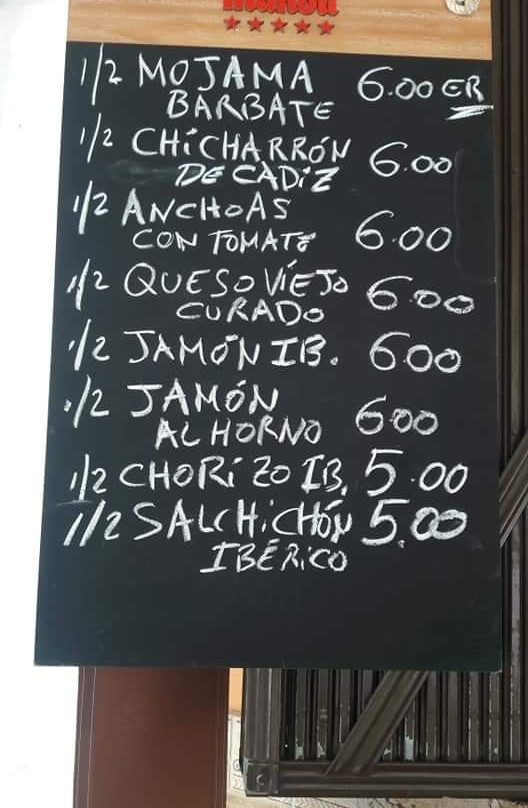 mahou
1/2 MOJAMA 6.00 ER
BARBATE
1/2 CHiCHARRÓN 6.00
DE CADiZ
1/2 ANCHOAS
CON TOMATE 6.00
1/2 QUESO VIEJO 6.00
CURADO
1/2 JAMÓN IB. 6.00
1/2 JAMÓN
AL HORNO 600
1/2 CHORIZO IB. 5.00
1/2 SALCHiCHÓN 5.00
IBÉRICO